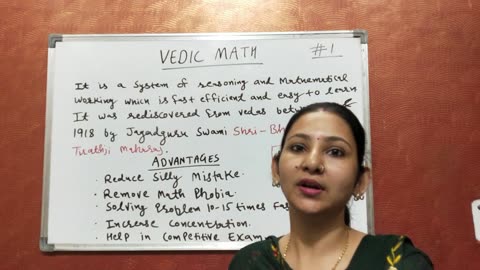 VEDIC MATH #1
It is a System of reasoning and Mathematical
Working which is fast efficient and easy to learn
It was rediscovered from vedas
1918 by Jagadguru Swami Shri-
Tirathji Maharaj.
ADVANTAGES
• Reduce Silly Mistake.
• Remove Math Phobia.
• Solving Problem 10-15 times
• Increase Concentration.
• Help in Competitive Exam